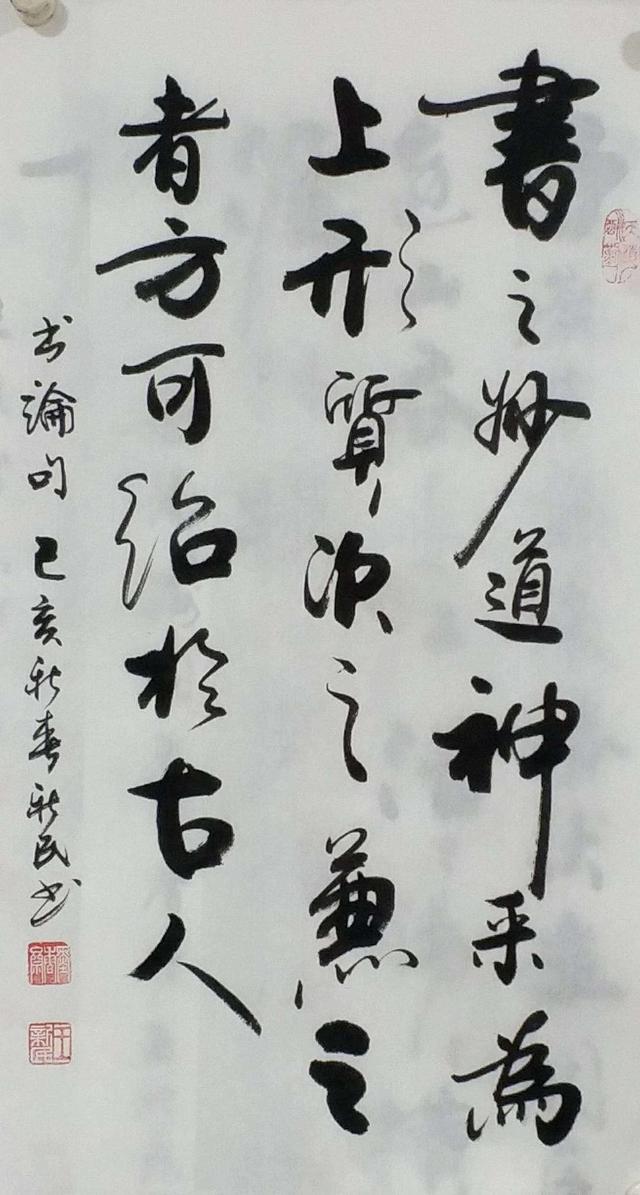 書之妙道神采為
上形質次之兼之
者方可紹於古人
书論句己亥秋春新民书